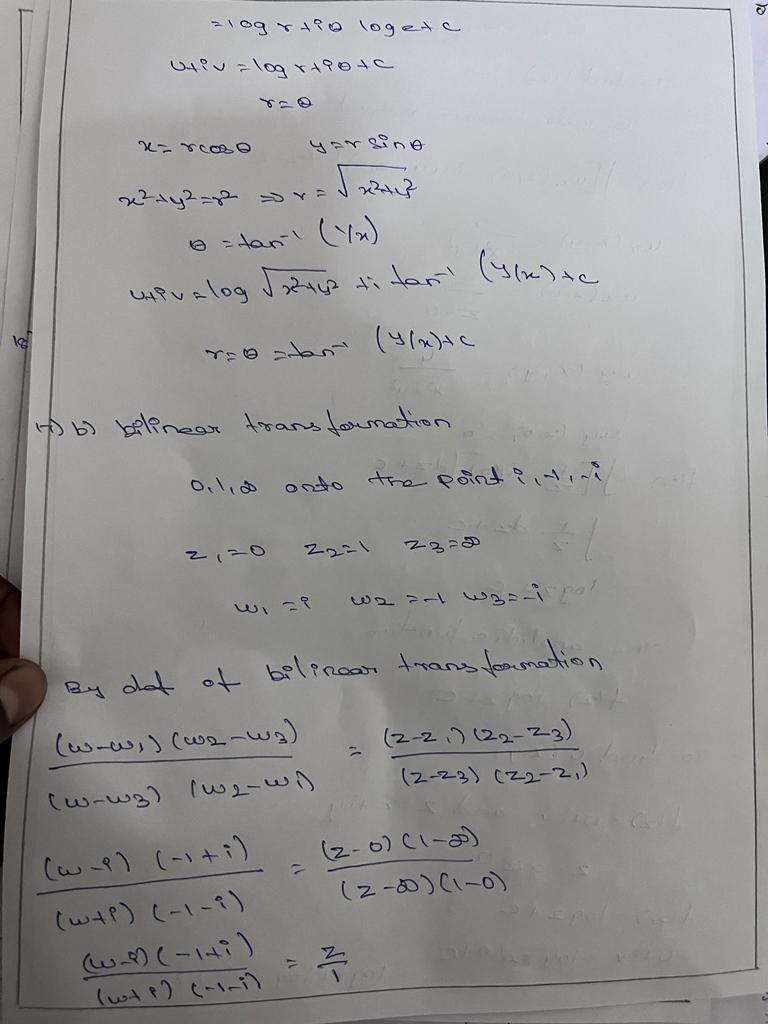 = log r + iθ log e + c
u+iv = log r + iθ + c
r = θ
x = r cos θ y = r sin θ
x² + y² = r² ⇒ r = √x²+y²
θ = tan⁻¹ (y/x)
u+iv = log √x²+y² + i tan⁻¹ (y/x) + c
r = θ = tan⁻¹ (y/x) + c
18
17) b) bilinear transformation
0, 1, ∞ onto the point i, -1, -i
z₁ = 0 z₂ = 1 z₃ = ∞
w₁ = i w₂ = -1 w₃ = -i
By def of bilinear transformation
(w-w₁) (w₂-w₃) / (w-w₃) (w₂-w₁) = (z-z₁) (z₂-z₃) / (z-z₃) (z₂-z₁)
(w-i) (-1+i) / (w+i) (-1-i) = (z-0) (1-∞) / (z-∞) (1-0)
(w-i) (-1+i) / (w+i) (-1-i) = z/1